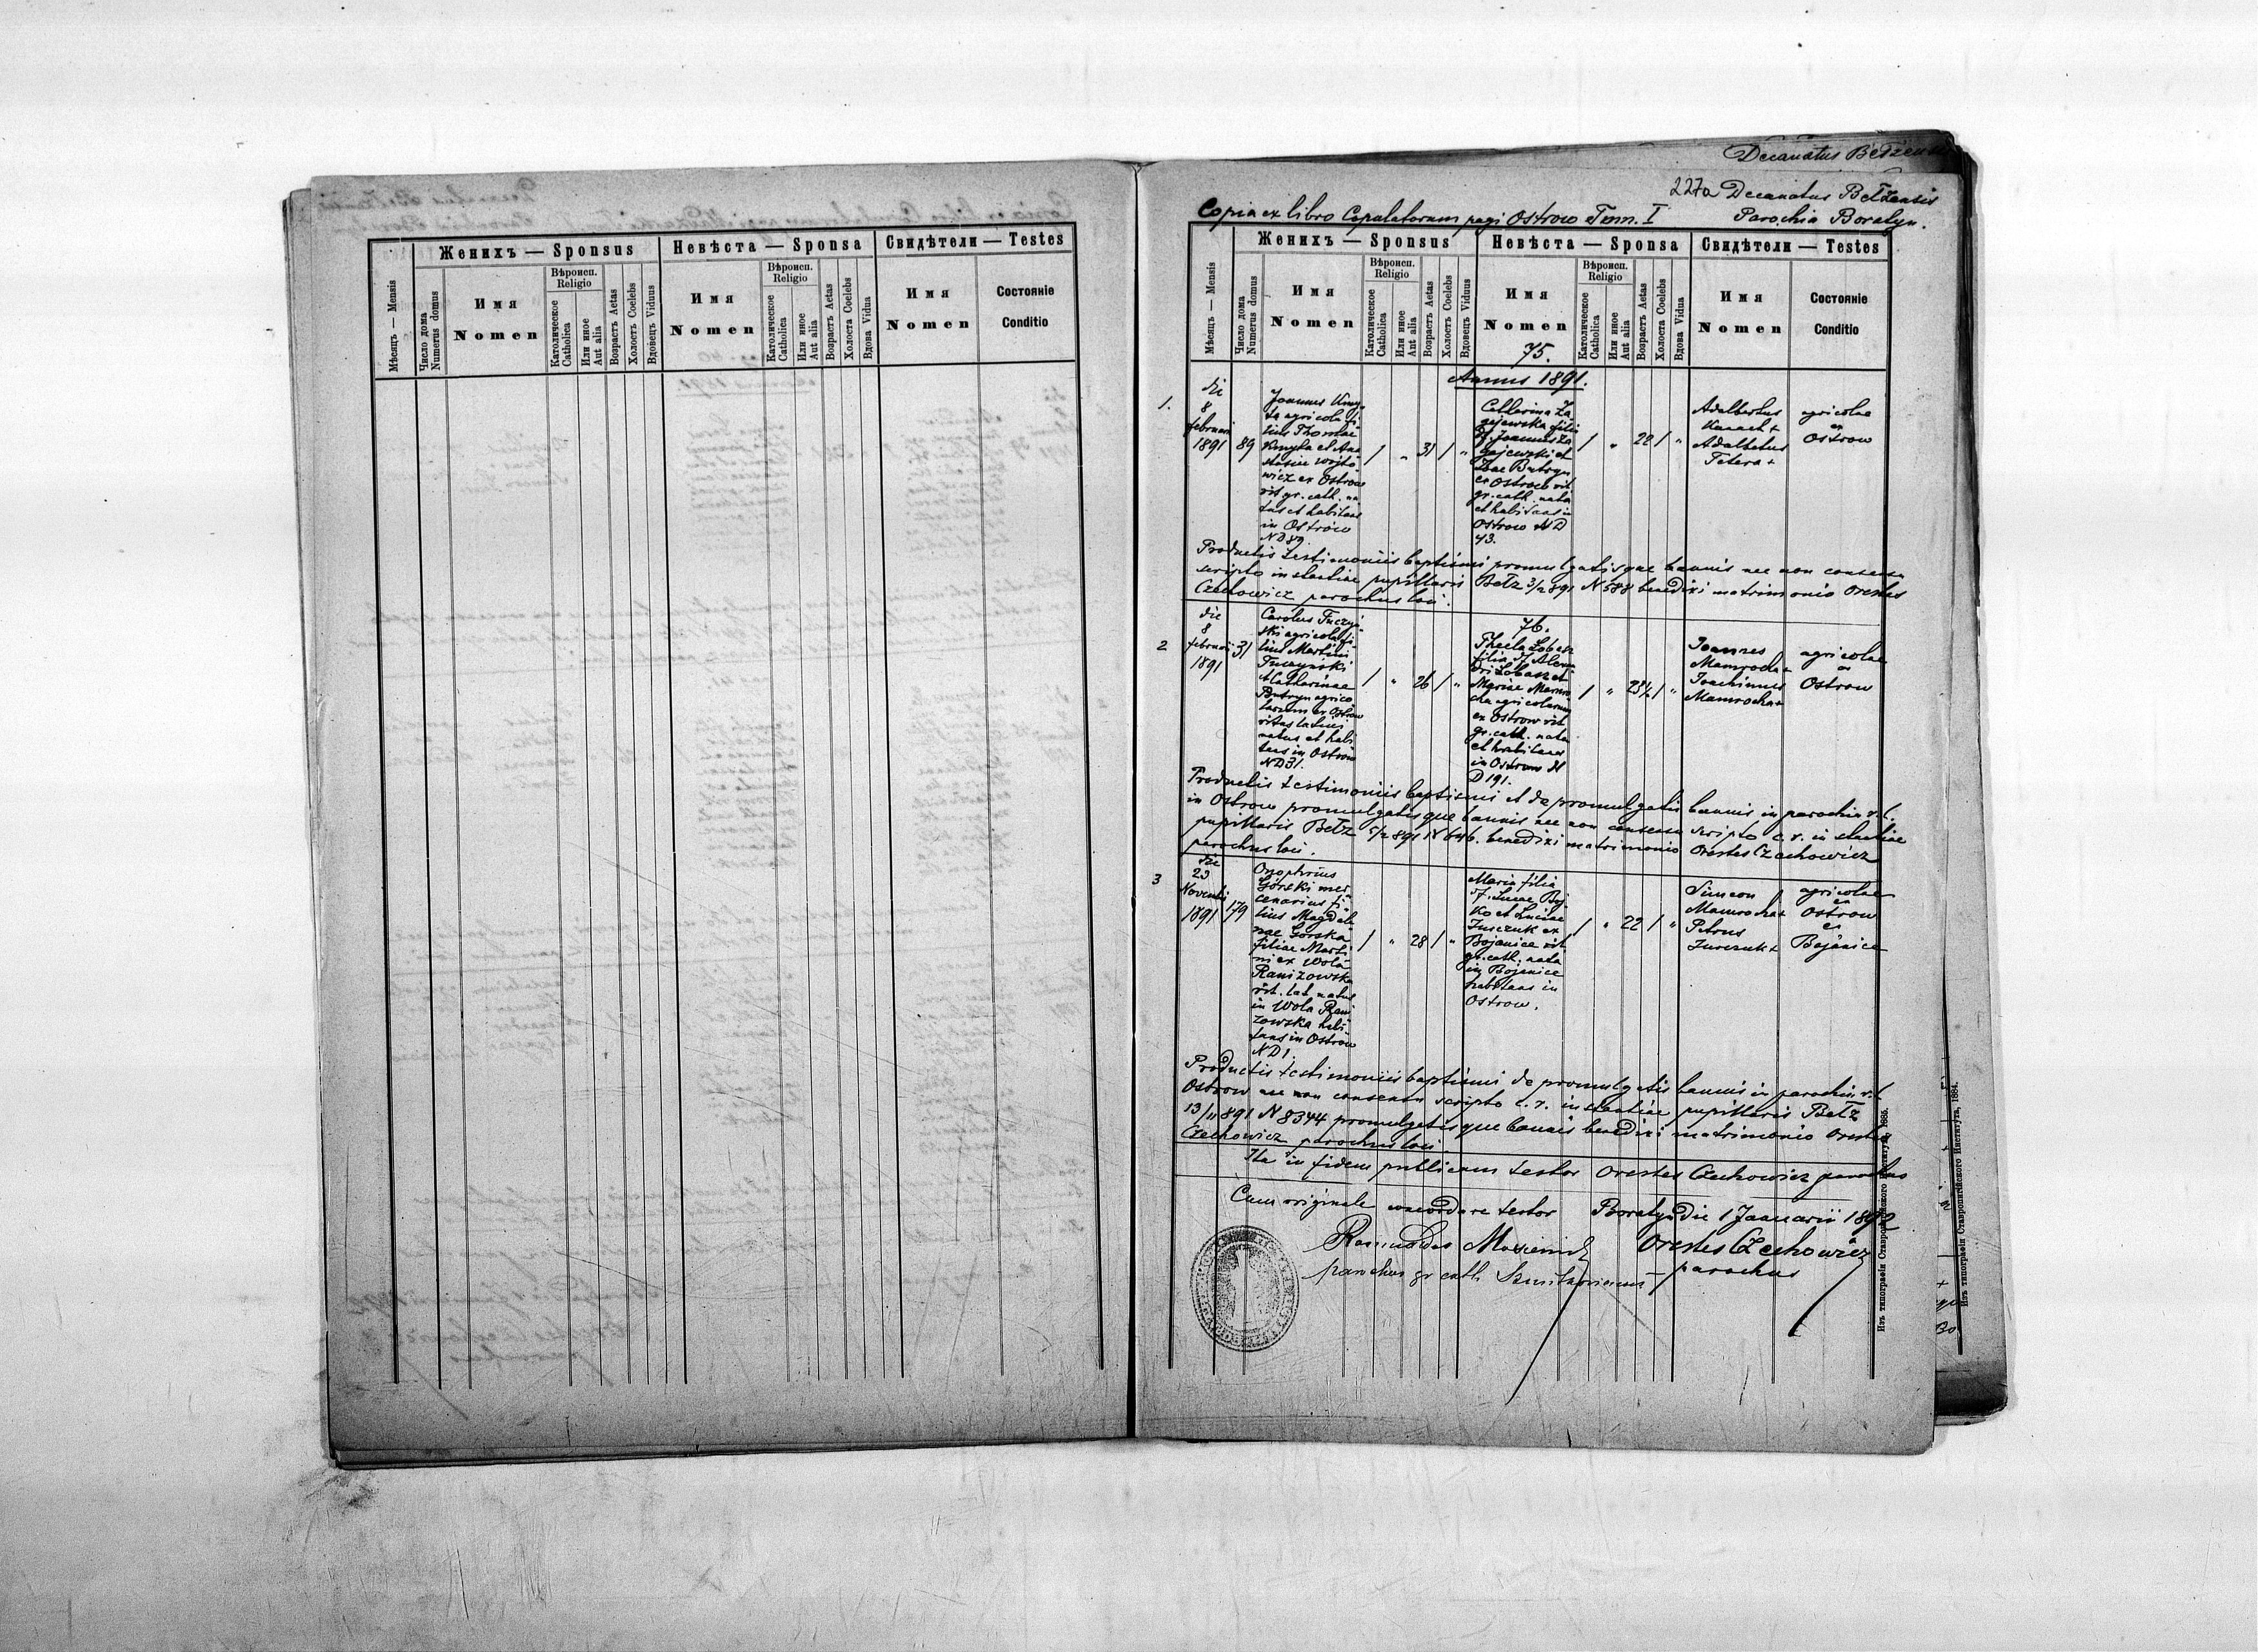 Женихъ — Sponsus
Невѣста — Sponsa
Свидѣтели — Testes
Мѣсяцъ — Mensis
Число дома
Numerus domus
Имя
Nomen
Вѣроисп.
Religio
Католическое
Catholica
Или иное
Aut alia
Возрастъ Aetas
Холостъ Coelebs
Вдовецъ Viduus
Имя
Nomen
Вѣроисп.
Religio
Католическое
Catholica
Или иное
Aut alia
Возрастъ Aetas
Холоста Coelebs
Вдова Vidua
Имя
Nomen
Состояніе
Conditio
Decanatus
227a Decanatus Bełzensis
Copia ex libro Copulatorum pagi Ostrow Tom. I
Parochia Boratyn.
Женихъ — Sponsus
Невѣста — Sponsa
Свидѣтели — Testes
Мѣсяцъ — Mensis
Число дома
Numerus domus
Имя
Nomen
Вѣроисп.
Religio
Католическое
Catholica
Или иное
Aut alia
Возрастъ Aetas
Холостъ Coelebs
Вдовецъ Viduus
Имя
Nomen
75.
Вѣроисп.
Religio
Католическое
Catholica
Или иное
Aut alia
Возрастъ Aetas
Холоста Coelebs
Вдова Vidua
Имя
Nomen
Состояніе
Conditio
Annus 1891.
1.
die
8
februarii
1891
89
Joannes Kmy-
ta agricola fi
lius Thomae
Kmyta et Ana
stasiae Wojto
wicz ex Ostrow
rit gr. cath. na
tus et habitans
in Ostrow
ND 89.
/ „ 31 / „
Catharina Za
gajewska filia
Joannis Za
gajewski et
Butryn
ex Ostrow rit
gr. cath. nata
et habitans in
Ostrow ND
43.
/ „ 22 / „
Adalbertus
+
Adalbertus
Tetera +
agricolae
ex
Ostrow
Productis testimoniis baptismi promulgatisque bannis nec non consensu
scripto instantiae pupillaris Bełz 3/2 891 N 588 benedixi matrimonio Orestes
Czechowicz parochus loci.
2
die
8
februarii
1891
31
Carolus Tuczyń-
ski agricola fi-
lius Martini
Tuczyński
et Catharinae
Butryn agrico
larum ex Ostrow
ritus latini
natus et habi
tans in Ostrow
ND 31.
/ „ 26 / „
76.
Thecla Lobasz
filia
Lobasz et
Mariae Mamro
cha agricolarum
ex Ostrow rit
gr. cath. nata
et habitans
in Ostrow N
D 191.
/ „ 23½ / „
Joannes
Mamrocha +
Joachimus
Mamrocha +
agricolae
ex
Ostrow
Productis testimoniis baptismi et de promulgatis bannis in parochia r. l.
in Ostrow promulgatisque bannis nec non consensu scripto c. r. instantiae
pupillaris Bełz 5/2 891 N 646. benedixi matrimonio Orestes Czechowicz
parochus loci.
3
die
23
Novembri
1891
179
Onophrius
Górski mer
cenarius fi
lius Magdale
nae Górska
filiae Marti
ni ex Wola
Ranizowska
rit. lat natus
in Wola Rani
zowska habi
tans in Ostrow
ND 1.
/ „ 28 / „
Maria filia
Lucae Boj
ko et Luciae
Jurczuk ex
Bojanice rit
gr. cath. nata
in Bojanice
habitans in
Ostrow.
/ „ 22 / „
Simeon
Mamrocha +
Petrus
Jurczuk +
agricolae
ex
Ostrow
ex
Bojanice
Productis testimoniis baptismi de promulgatis bannis in parochia r. l.
Ostrow nec non consensu scripto c. r. instantiae pupillaris Bełz
13/11 891 N 8344 promulgatisque bannis benedixi matrimonio Orestes
Czechowicz parochus loci.
Ita in fidem publicam testor Orestes Czechowicz parochus
Cum originale concordare testor
Boratyn die 1 Januarii 1892
Romualdus
Orestes Czechowicz
parochus gr cath
parochus
Изъ типографіи Ставропигійского Института, 1885.
Изъ типографіи Ставропигійского Института, 1884.